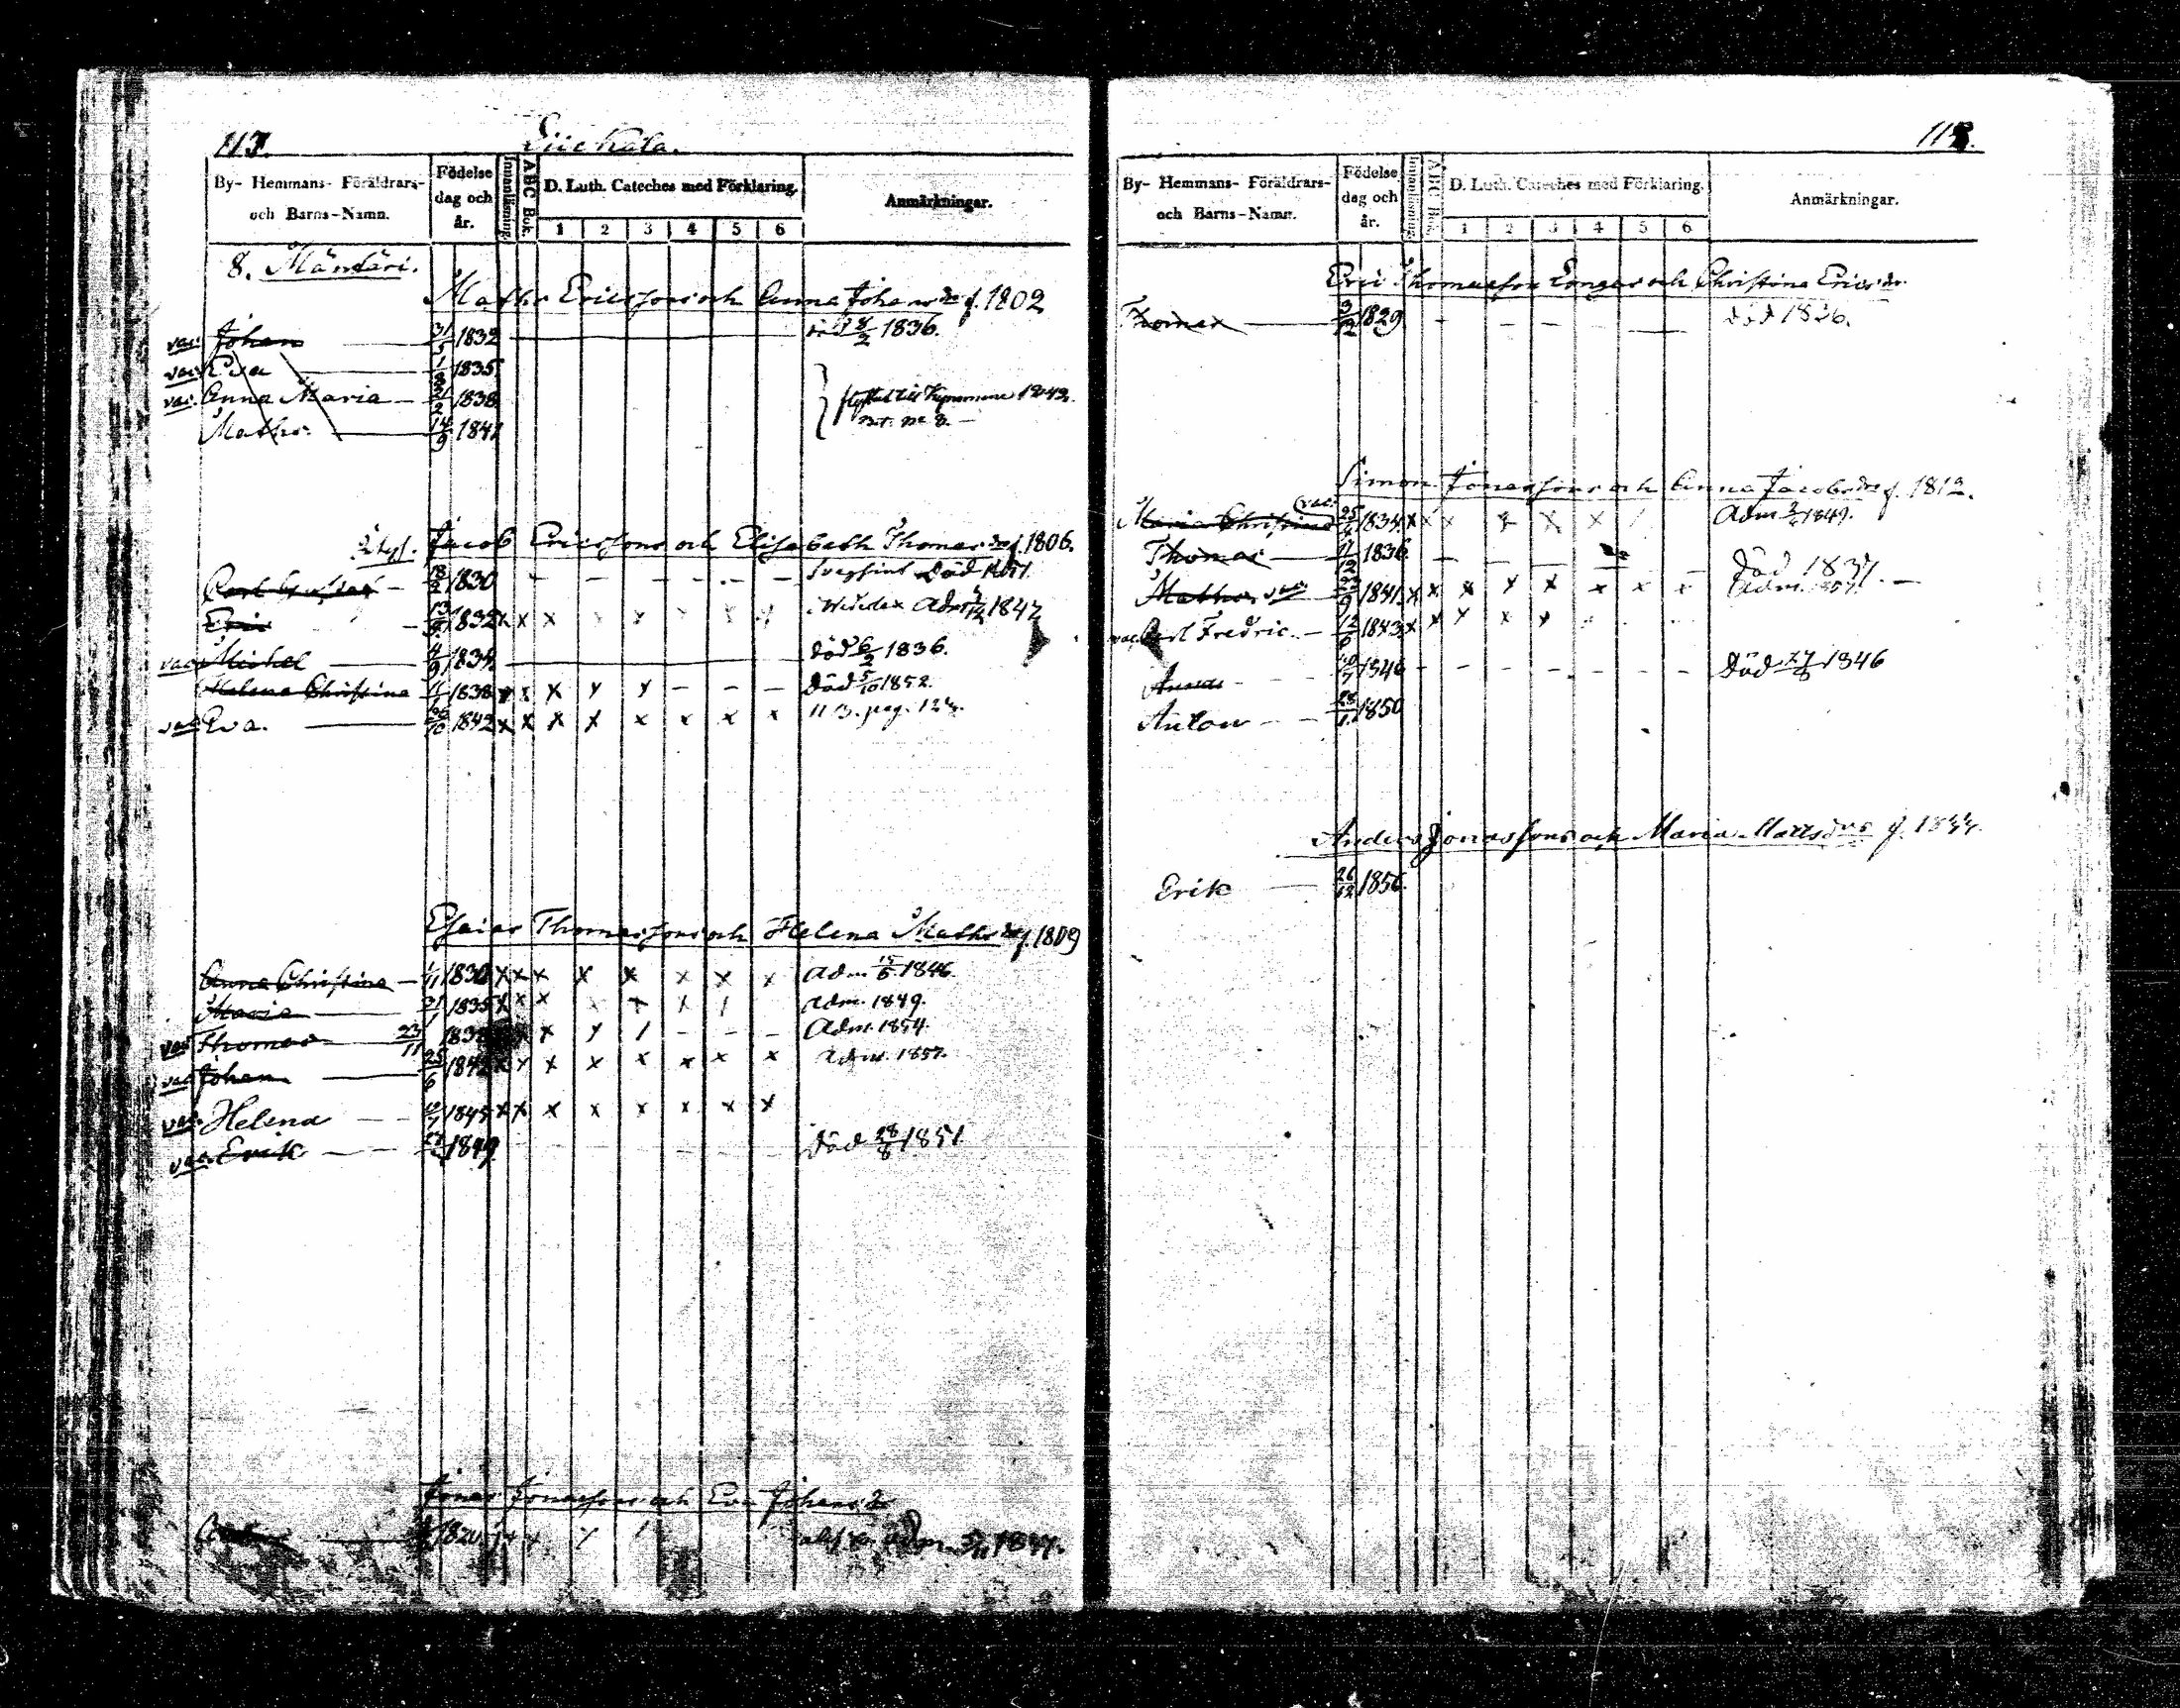 113.
Siickala.
By- Hemmans- Föräldrars- och Barns-Namn.
Födelse dag och år.
Innanläsning.
ABC Bok.
D. Luth. Cateches med Förklaring.
1 2 3 4 5 6
Anmärkningar.
8. Mäntäri.
Maths Ericsson och Anna Johansdr f. 1802
vac. Johan — 31/5 1832 — död 8/2 1836.
vac. Eva — 1/8 1835
vac. Anna Maria — 21/2 1838 flyttat till Kymmene 1843.
Maths — 14/9 1841
Jacob Ericsson och Elisabeth Thomasdr f. 1806.
Carl Gustaf — 18/2 1830 — — — — — — Död 1851.
Eric — 1832 x x x x x x Adm 1847
vac. Michel — 4/9 1834 — död 6/2 1836.
Helena Christina 1838 x x x y y — — — Död 5/10 1852.
vac. Eva. — 1842 x x x x x x x x pag. 124.
Esaias Thomasson och Helena Mathsdr f. 1809
Anna Christina — 1/11 1830 x x x x x x x x Adm 15/6 1846.
Maria — 21/1 1835 x x x x x x 1 Adm. 1849.
vac Thomas — 23/11 1838 x x y 1 — — — Adm. 1854.
vac Johan — 25/6 1842 x x x x x x x x Adm. 1857.
vac. Helena — 1845 x x x x x x x x
vac. Erik — — 1849 — — — Död 28/8 1851
Jonas Jonasson och Eva Johansdr
1820
By- Hemmans- Föräldrars- och Barns-Namn.
Födelse dag och år.
Innanläsning.
ABC Bok.
D. Luth. Cateches med Förklaring.
1 2 3 4 5 6
Anmärkningar.
Eric Thomasson Longar och Christina Ericsdr
Thomas — 3/12 1829 — — — — död 1836.
Simon Jonasson och Anna Jacobsdr f. 1813.
Maria Christina vac. 25/4 1834 x x x x x x 1 Adm. 1849.
Thomas — 11/12 1836 — — — — Död 1837.
Mathias vac 1841 x x x x x x x x Adm. 1857.
vac Carl Fredric. — 12/6 1843 x x y x x
— — 1846 — — — — — — Död 27/8 1846
Anton — — 28/1 1850
Anders Jonasson och Maria Mattsdr f.
Erik — 26/12 1856.